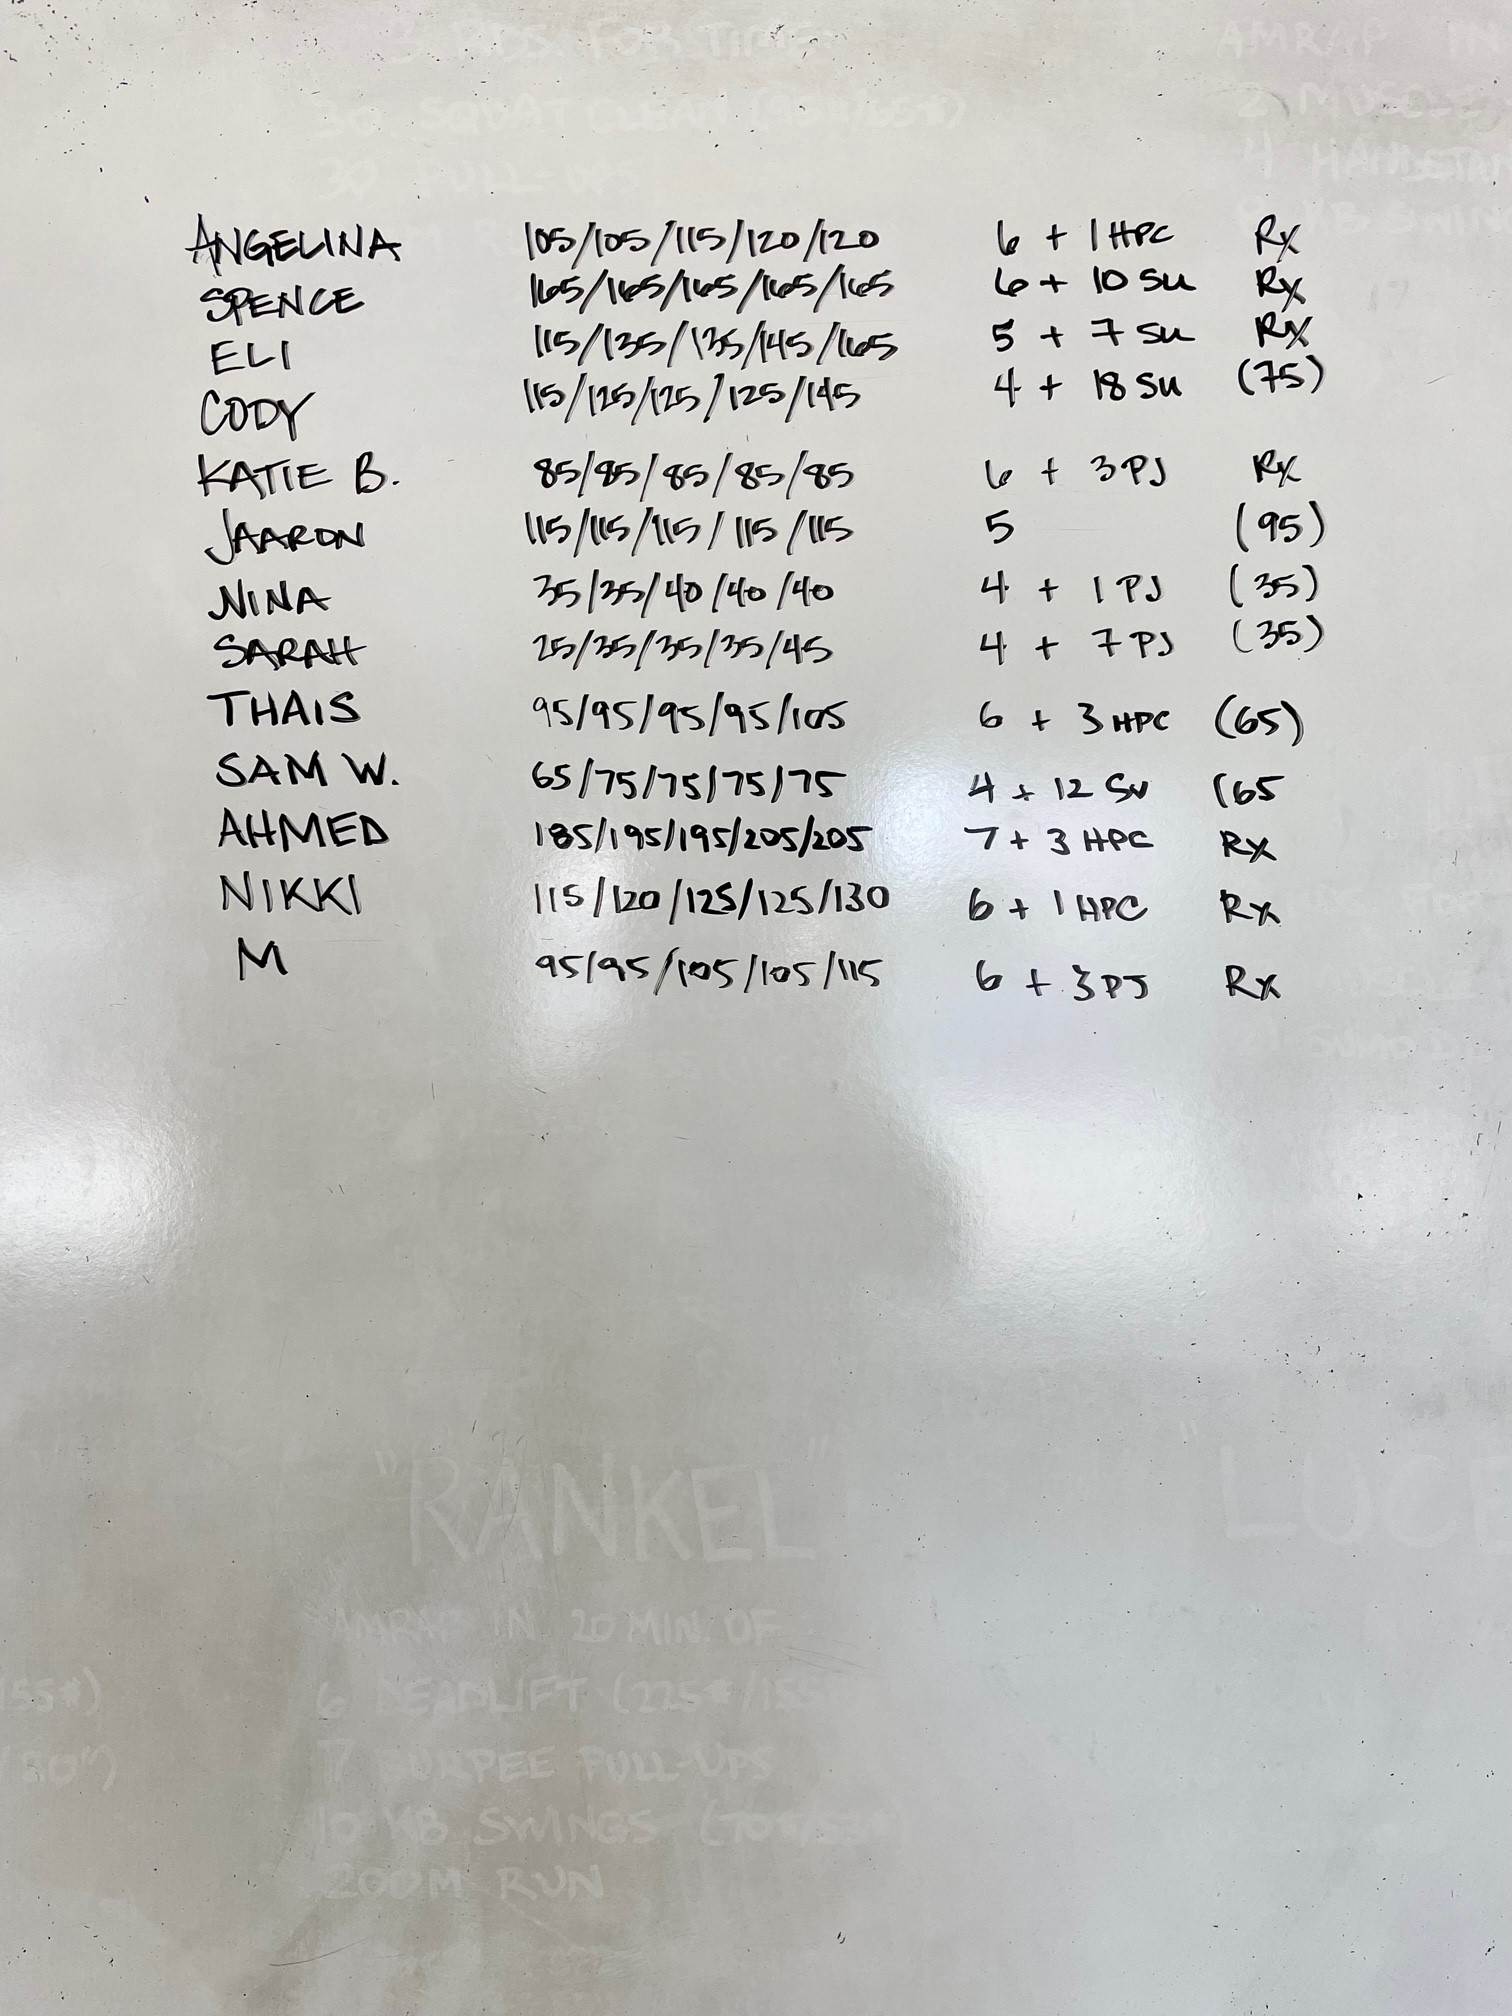 3 RDS. FOR TIME
30 SQUAT CLEAN
30 PULL-UPS
AMRAP IN
2 MUSCLE
4 HANDSTAN
KB SWIN
ANGELINA 105/105/115/120/120 6 + 1 HPC Rx
SPENCE 165/165/165/165/165 6 + 10 SU Rx
ELI 115/135/135/145/165 5 + 7 SU Rx
CODY 115/125/125/125/145 4 + 18 SU (75)
KATIE B. 85/85/85/85/85 6 + 3 PJ Rx
JAARON 115/115/115/115/115 5 (95)
NINA 35/35/40/40/40 4 + 1 PJ (35)
SARAH 25/35/35/35/45 4 + 7 PJ (35)
THAIS 95/95/95/95/105 6 + 3 HPC (65)
SAM W. 65/75/75/75/75 4 + 12 SU (65
AHMED 185/195/195/205/205 7 + 3 HPC Rx
NIKKI 115/120/125/125/130 6 + 1 HPC Rx
M 95/95/105/105/115 6 + 3 PJ Rx
SUMO
"RANKEL"
"LUCE
AMRAP IN 20 MIN. OF
6 DEADLIFT (225#/155
7 BURPEE PULL-UPS
10 KB SWINGS
200M RUN
155#)
/20")